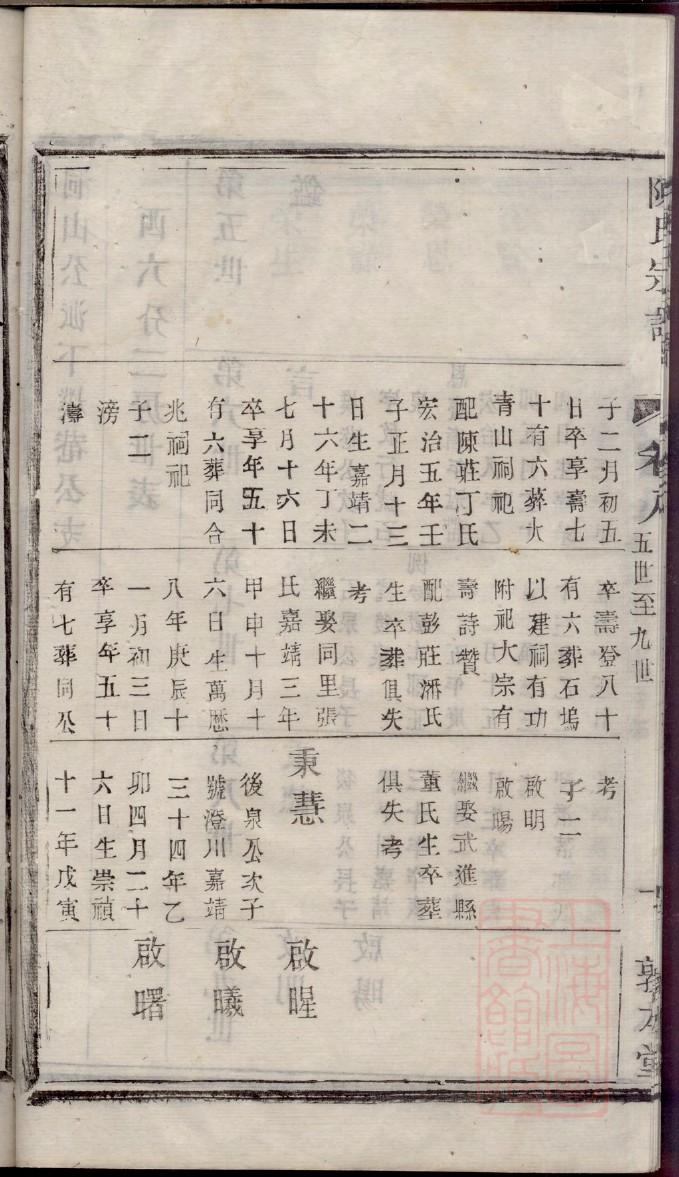 陳氏宗譜
卷九
五世至九世
敦本堂
子二月初五
日卒享壽七
十有六葬大
青山祠祀
配陳莊丁氏
宏治五年壬
子正月十三
日生嘉靖二
十六年丁未
七月十六日
卒享年五十
有六葬同合
兆祠祀
子二
滂
濤
卒壽登八十
有六葬石塢
以建祠有功
附祀大宗有
壽詩贊
配彭莊潘氏
生卒葬俱失
考
繼娶同里張
氏嘉靖三年
甲申十月十
六日生萬曆
八年庚辰十
一月初三日
卒享年五十
有七葬同公
考
子二
啟明
啟暘
繼娶武進縣
董氏生卒葬
俱失考
秉慧
後泉公次子
號澄川嘉靖
三十四年乙
卯四月二十
六日生崇禎
十一年戊寅
啟暒
啟曦
啟曙
上海圖書館藏